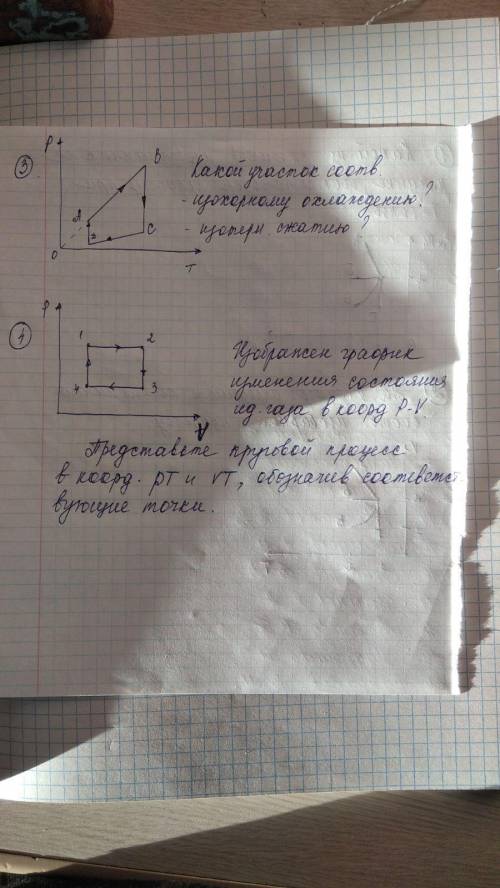 P
③
B
A
D
C
O
T
Какой участок соотв.
- изохорному охлаждению?
- изотерм. сжатию?
P
④
1
2
4
3
V
Изображен график
изменения состояния
ид. газа в коорд P-V
Представьте круговой процесс
в коорд. pT и VT, обозначив соответст
вующие точки.